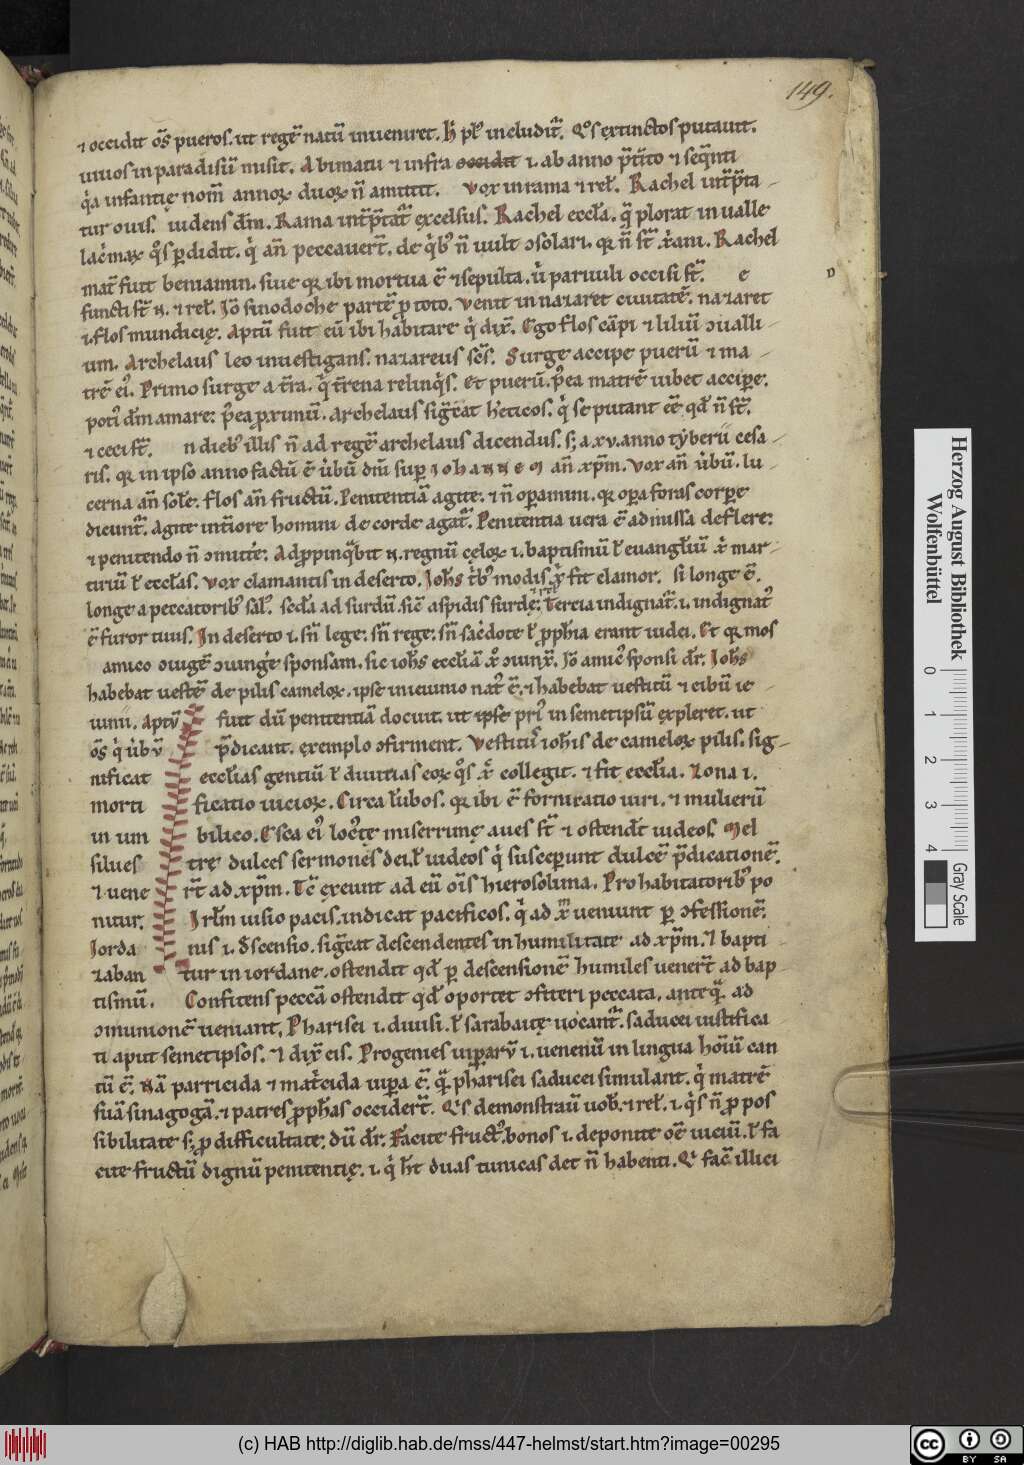 149.
⁊ occidit oс̄s pueros. ut regē natū inueniret. h̄ pl᷒ includit᷑. Qͦs extinctos putauit.
uiuos in paradisū misit. A bimatu ⁊ infra occidit .i. ab anno p̄t̄ito ⁊ seq̄nti
q̇a infantię nom̄ annoꝝ duoꝝ n̄ amittit. Vox in rama ⁊ rel̄. Rachel int̄p̄ta-
tur ouis. uidens dm̄. Rama int̄p̄tat᷑ excelsus. Rachel eccl̄a. q̄ plorat in ualle
lac̓maꝝ qͦs ꝑdidit. q̇ an̄ peccauer̄t. de q̇b᷒ n̄ uult ↄsolari. qꝛ n̄ st̄ x̄ani. Rachel
mat̄ fuit beniamin. siue qꝛ ibi mortua ē ⁊ sepulta. u̇ paruuli occisi st̄. e D
functi st̄ N. ⁊ rel̄. Iō sinodoche partē ꝓ toto. Venit in nazaret ciuitatē. nazaret
.i. flos mundicię. Aptū fuit eū ibi habitare q̇ dix̄. Ego flos cāpi ⁊ liliū ↄualli-
um. Archelaus leo inuestigans. nazareus sc̄s. Surge accipe puerū ⁊ ma-
trē ei᷒. Primo surge a t̄ra. q̇ t̄rena relinq̇s. Et puerū. p̄ea matrē iubet accipe.
poti᷒ dm̄ amare. p̄ea ꝓximū. Archelaus sig̅cat h̓eticos. q̇ se putant ēē qd̄ n̄ st̄.
⁊ ceci st̄. n dieb᷒ illis n̄ ad regē archelaus dicendus. s; a .xv. anno tyberii cesa-
ris. qꝛ in ipso anno factū ē u̇bū dn̄i suꝑ iohannem an̄ xp̄m. Vox an̄ u̇bū. lu-
cerna an̄ solē. flos an̄ fructū. Penitentiā agite. ⁊ n̄ oꝑamini. qꝛ oꝑa foris corꝑe
dicunt᷑. Agite int̄iore homini de corde agat᷑. Penitentia uera ē admissa deflere.
⁊ penitendo n̄ ↄmitte. Adꝓpinq̄bit N. regnū cęloꝝ .i. baptismū l̄ euangl̄iū x̄ mar-
tiriū l̄ eccl̄as. Vox clamantis in deserto. Ioh̄s t̓b᷒ modis x̄ fit clamor. si longe ē.
longe a peccatorib᷒ sal᷒. sed̄a ad surdū. sic̄ aspidis surdę. Tercia indignat̄ .i. indignat᷒
ē furor tuus. In deserto .i. sn̄ lege. sn̄ rege. sn̄ sac̓dote l̄ ꝓph̄ia erant iudei. Et qꝛ mos
amico ↄiugē ↄiunge sponsam. sic ioh̄s eccl̄iā xͦ ↄiunx̄. Iō amic᷒ sponsi dr̄. Ioh̄s
habebat uestē de pilis cameloꝝ. ipse in ieiunio nat᷒ ē. ⁊ habebat uestitū ⁊ cibū ie-
iunii. Aptū fuit dū penitentiā docuit. ut ipse pri᷒ in semetipsū expleret. ut
oс̄s q̇ u̇bū p̄dicant. exemplo ↄfirment. Vestitu᷒ ioh̄is de cameloꝝ pilis. sig-
nificat eccl̄ias gentiū l̄ diuitias eoꝝ qͦs x̄ collegit. ⁊ fit eccl̄ia. Zona .i.
morti ficatio uicioꝝ. Circa lūbos. qꝛ ibi ē fornicatio uiri. ⁊ mulierū
in um bilico. Esca ei᷒ locͣtę miserrimę aues st̄ ⁊ ostendt̄ iudeos. Mel
silues trę dulces sermones dei. l̄ iudeos q̇ susceꝑunt dulcē p̄dicationē.
⁊ uene rt̄ ad xp̄m. Tc̄ exeunt ad eū om̄s hierosolima. Pro habitatorib᷒ po
nitur. Irl̄m uisio pacis. indicat pacificos. q̇ ad x̄m ueniunt ꝑ ↄfessionē.
Iorda nis .i. d̄scensio. sig̅cat descendentes in humilitate ad xp̄m. ⁊ bapti
zaban tur in iordane. ostendit qd̄ ꝑ descensionē humiles uener̄t ad bap-
tismū. Confitens peccā ostendit qd̄ oportet ↄfiteri peccata. anteq̄ ad
ↄmunionē ueniant. Pharisei .i. diuisi. l̄ sarabaitę uocant᷑. saducei iustifica-
ti aput semetipsos. ⁊ dix̄ eis. Progenies uiꝑarū .i. uenenū in lingua hoīū can
tū ē. Nā parricida ⁊ mat̓cida uiꝑa ē. q̄ pharisei saducei simulant. q̇ matrē
suā sinagogā. ⁊ patres ꝓph̄as occider̄t. Q̇s demonstraū uob̄. ⁊ rel̄. .i. q̇s n̄ ꝓ pos
sibilitate s; ꝓ difficultate. dū dr̄. Facite fruct᷒ bonos .i. deponite oē uiciū. l̄ fa
cite fructū dignū penitentię. .i. q̇ ht̄ duas tunicas det n̄ habenti. Q̇ fac̄ illici
Herzog August Bibliothek
Wolfenbüttel
0 1 2 3 4
Gray Scale
(c) HAB http://diglib.hab.de/mss/447-helmst/start.htm?image=00295
cc BY SA